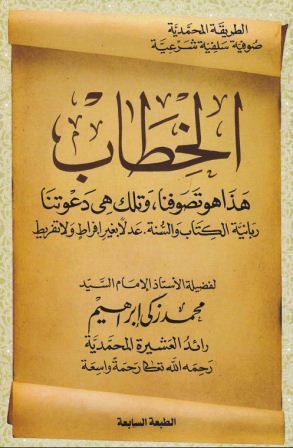 الطريقة المحمدية
صوفية سلفية شرعية
الخطاب
هذا هو تصوفنا، وتلك هي دعوتنا
ربانية الكتاب والسنة. عدلا بغير إفراط ولا تفريط
لفضيلة الأستاذ الإمام السيد
محمد زكي إبراهيم
رائد العشيرة المحمدية
رحمه الله تعالى رحمة واسعة
الطبعة السابعة